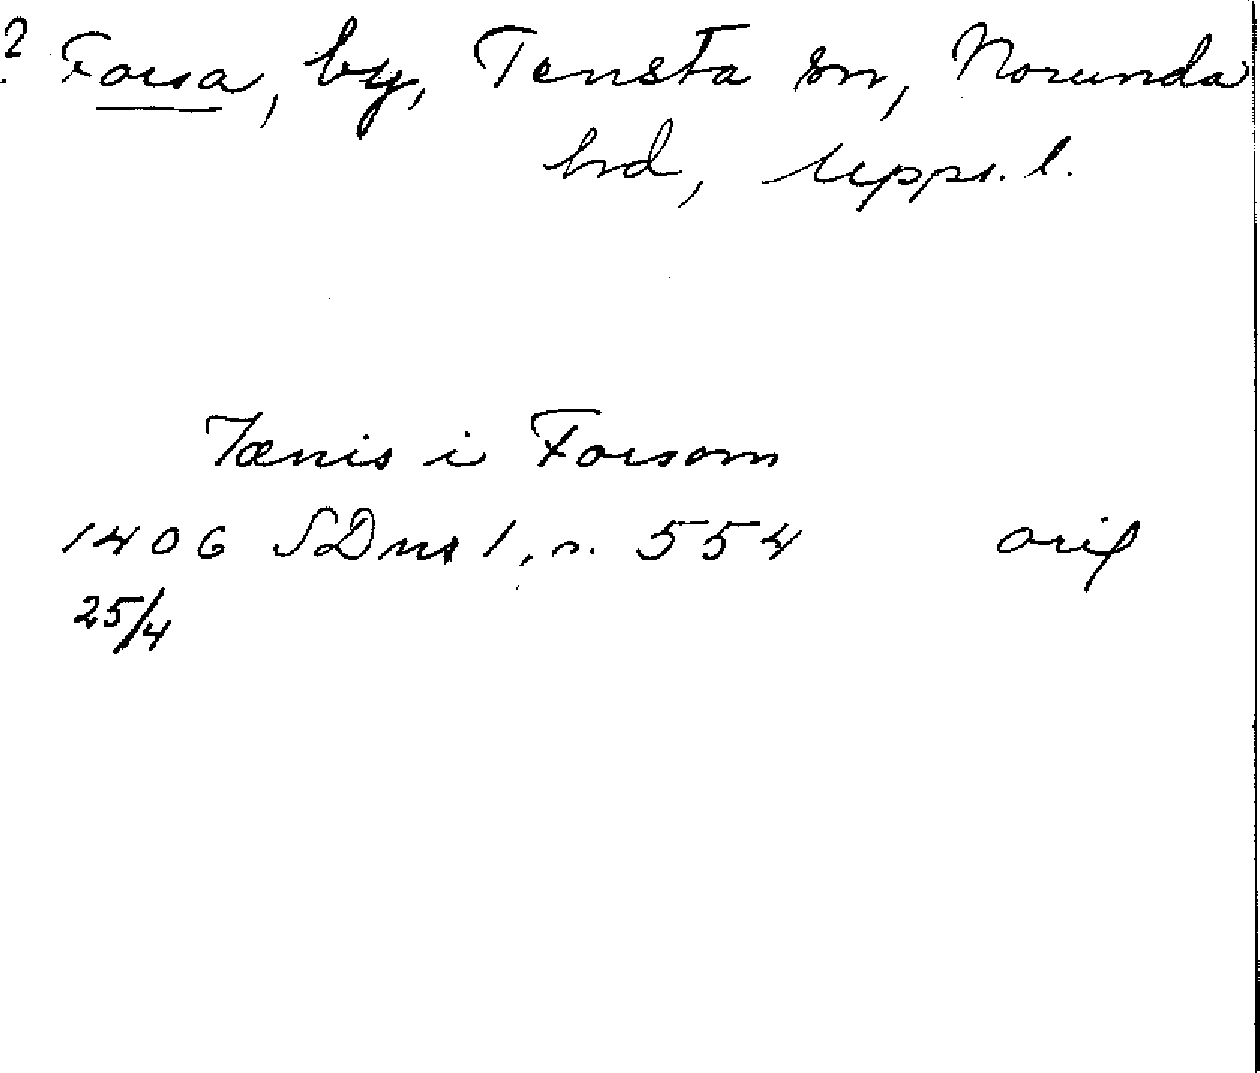 ? Forsa, by, Tensta sn, Norunda
hd, Upps. l.
Jænis i Forsom
1406 SDns 1, s. 554 orig
25/4